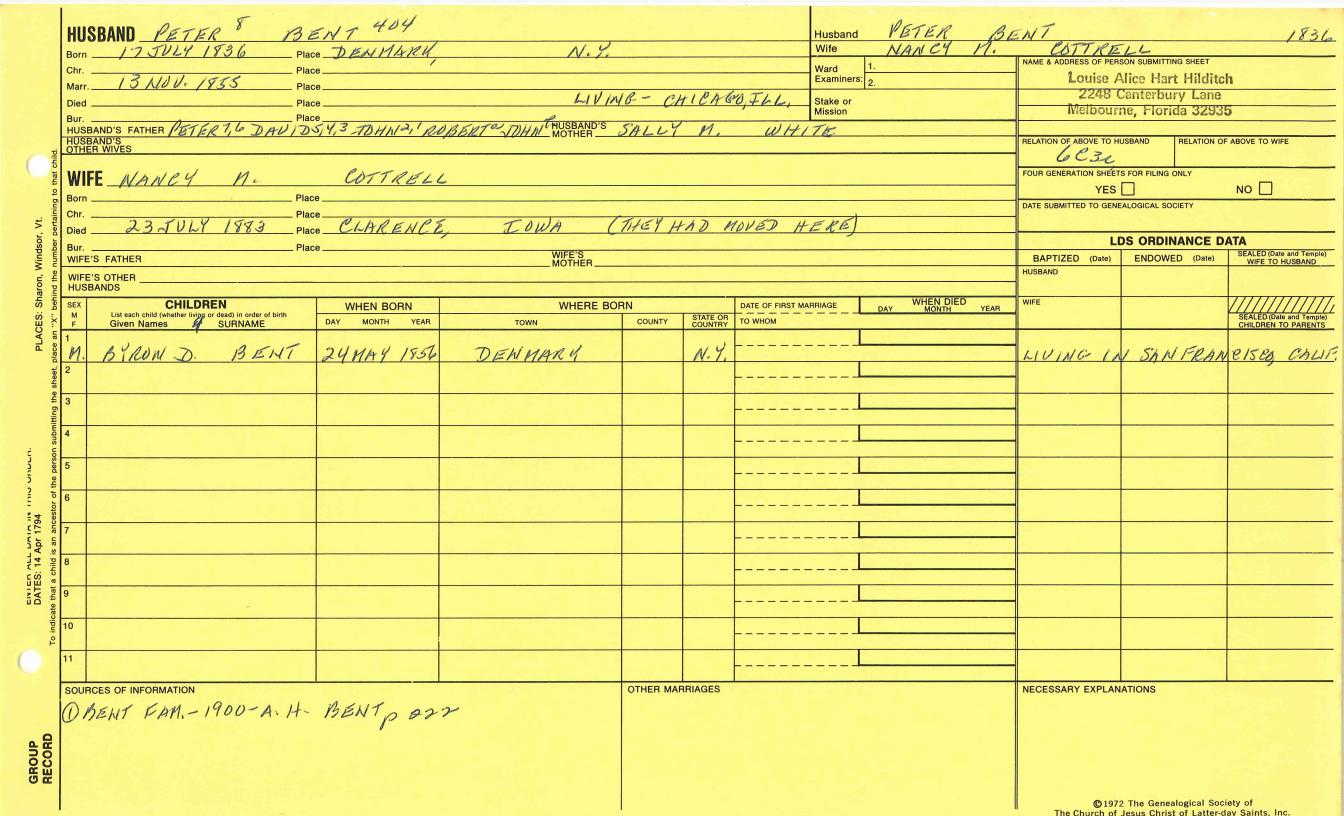 HUSBAND PETER 8 BENT 404
Born 17 JULY 1836 Place DENMARK, N.Y.
Chr. Place
Marr. 13 NOV. 1855 Place
Died Place LIVING - CHICAGO, ILL.
Bur. Place
HUSBAND'S FATHER PETER 7,6 DAVID 5,4,3 JOHN 2,1 ROBERT JOHN HUSBAND'S MOTHER SALLY M. WHITE
HUSBAND'S OTHER WIVES
Husband PETER BENT 1836
Wife NANCY M. COTTRELL
Ward Examiners: 1.
2.
Stake or Mission
NAME & ADDRESS OF PERSON SUBMITTING SHEET
Louise Alice Hart Hilditch
2248 Canterbury Lane
Melbourne, Florida 32935
RELATION OF ABOVE TO HUSBAND RELATION OF ABOVE TO WIFE
6C3r
FOUR GENERATION SHEETS FOR FILING ONLY
YES NO
DATE SUBMITTED TO GENEALOGICAL SOCIETY
WIFE NANCY M. COTTRELL
Born Place
Chr. Place
Died 23 JULY 1883 Place CLARENCE, IOWA (THEY HAD MOVED HERE)
Bur. Place
WIFE'S FATHER WIFE'S MOTHER
WIFE'S OTHER HUSBANDS
LDS ORDINANCE DATA
BAPTIZED (Date) ENDOWED (Date) SEALED (Date and Temple) WIFE TO HUSBAND
HUSBAND
WIFE
SEALED (Date and Temple) CHILDREN TO PARENTS
SEX M F CHILDREN WHEN BORN WHERE BORN DATE OF FIRST MARRIAGE WHEN DIED
List each child (whether living or dead) in order of birth
Given Names SURNAME DAY MONTH YEAR TOWN COUNTY STATE OR COUNTRY TO WHOM DAY MONTH YEAR
1 M. BYRON D. BENT 24 MAY 1856 DENMARK N.Y. LIVING IN SAN FRANCISCO, CALIF.
2
3
4
5
6
7
8
9
10
11
SOURCES OF INFORMATION OTHER MARRIAGES NECESSARY EXPLANATIONS
① BENT FAM. - 1900 - A. H. BENT p 222
©1972 The Genealogical Society of
The Church of Jesus Christ of Latter-day Saints, Inc.
GROUP RECORD
ENTER ALL DATA IN THIS ORDER:
DATES: 14 Apr 1794
PLACES: Sharon, Windsor, Vt.
To indicate that a child is an ancestor of the person submitting the sheet, place an "X" behind the number pertaining to that child.